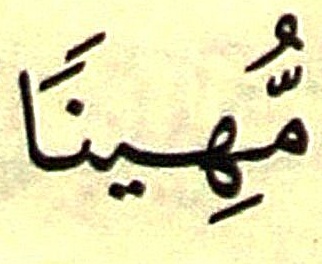 مُّهِينًا